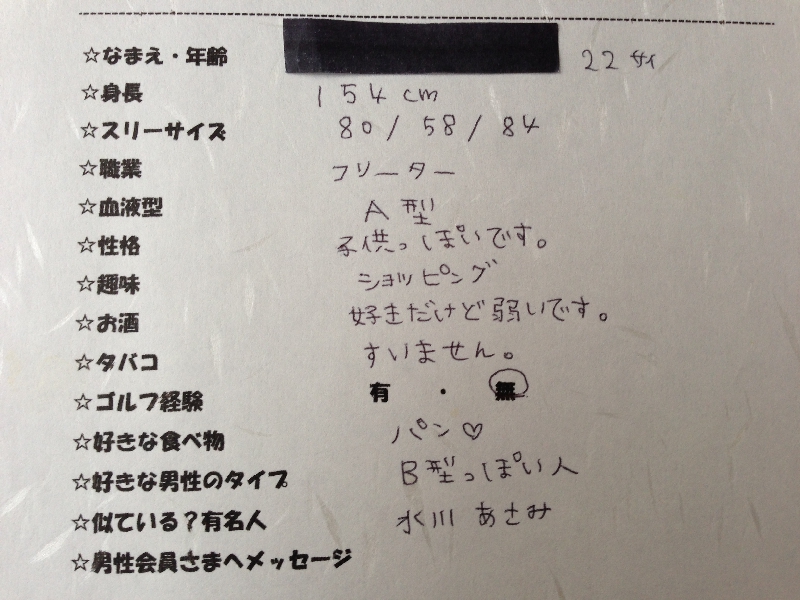 ☆なまえ・年齢 22サイ
☆身長 154cm
☆スリーサイズ 80/58/84
☆職業 フリーター
☆血液型 A型
☆性格 子供っぽいです。
☆趣味 ショッピング
☆お酒 好きだけど弱いです。
☆タバコ すいません。
☆ゴルフ経験 有・無
☆好きな食べ物 パン♡
☆好きな男性のタイプ B型っぽい人
☆似ている?有名人 水川あさみ
☆男性会員さまへメッセージ